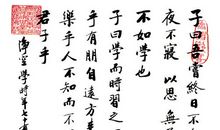 子曰吾嘗終日不
夜不寢以思無
不如學也
子曰學而時習之
乎有朋自遠方
樂乎人不知而不
君子乎
時年七十